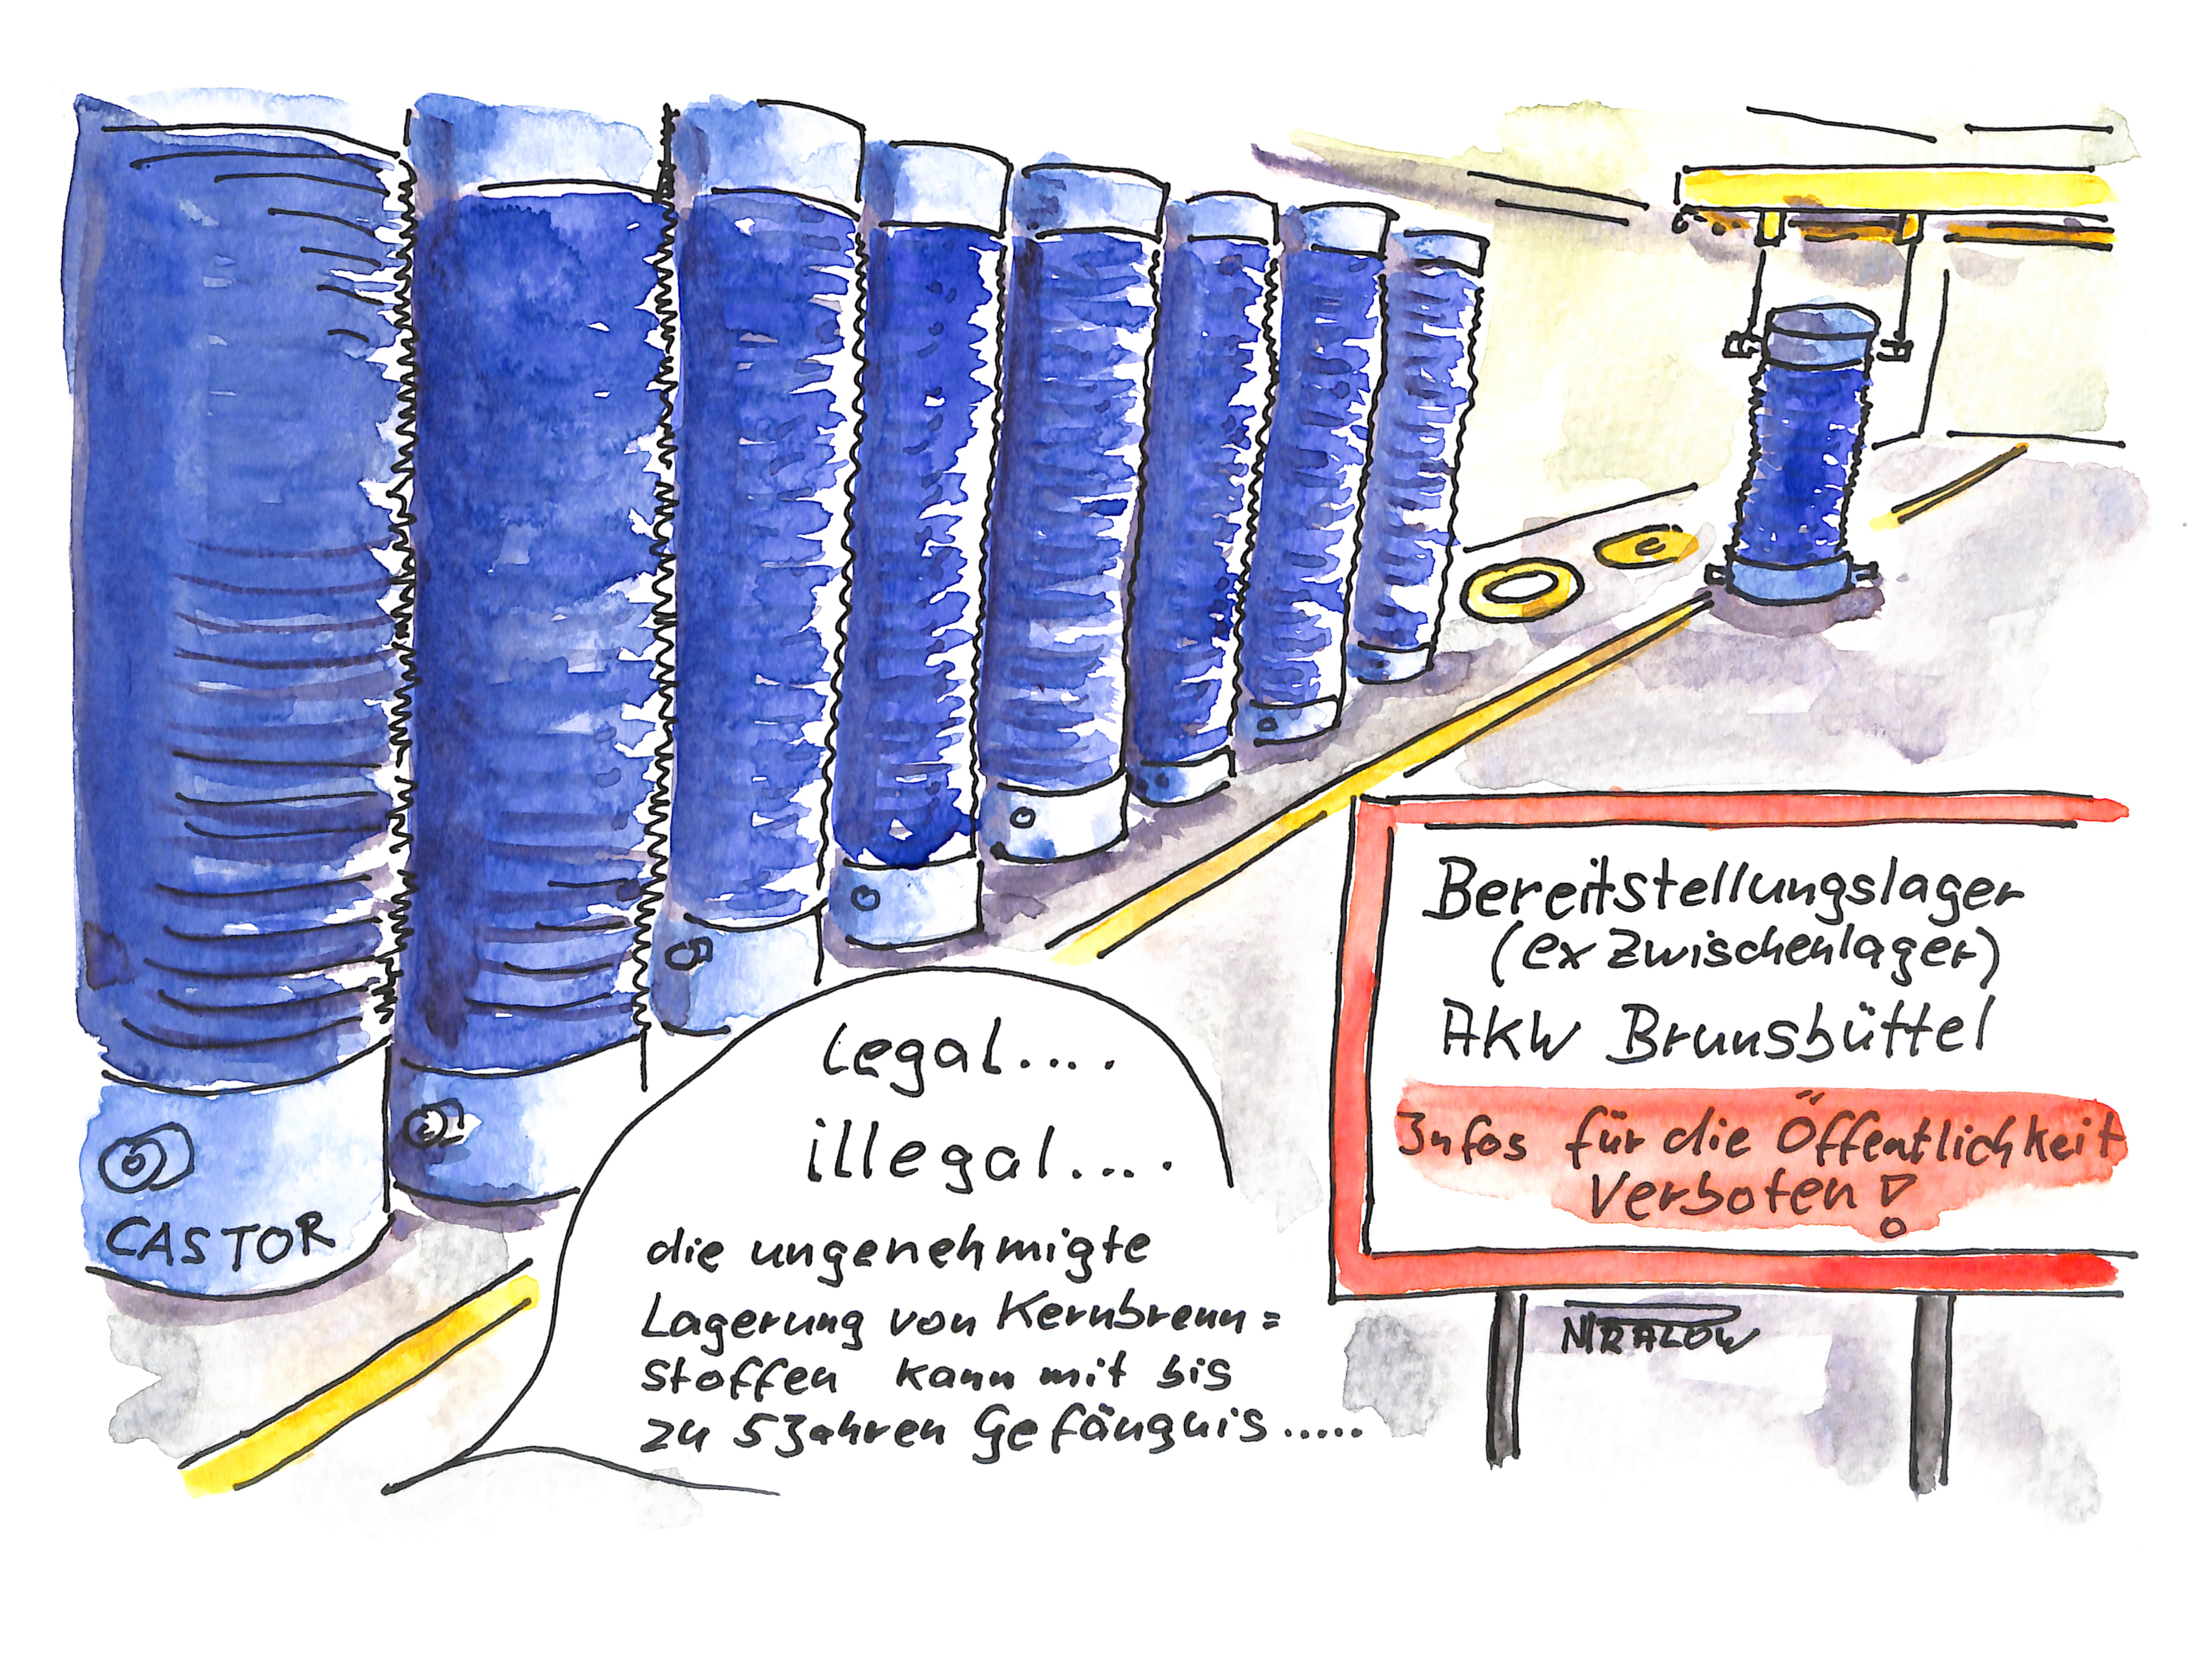 CASTOR
Legal....
illegal....
die ungenehmigte
Lagerung von Kernbrenn=
stoffen kann mit bis
zu 5 Jahren Gefängnis.....
Bereitstellungslager
(ex Zwischenlager)
AKW Brunsbüttel
Infos für die Öffentlichkeit
Verboten!
NIRALOW